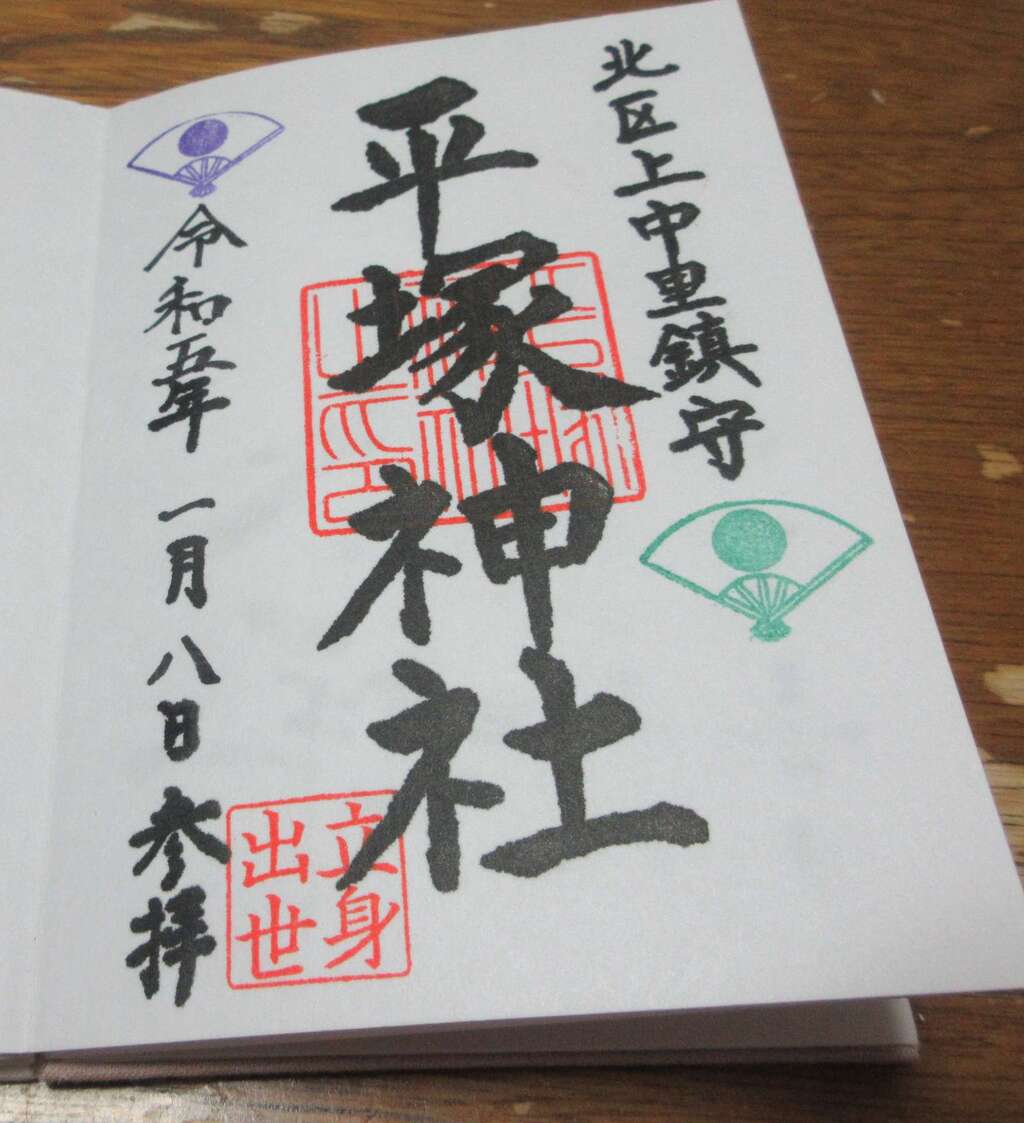 北区上中里鎮守
平塚神社
立身
出世
令和五年 一月八日 参拝